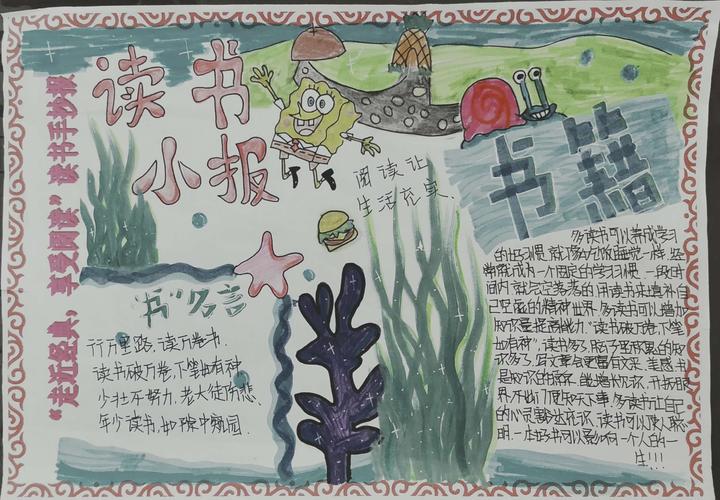 "走近经典,享受阅读"读书手抄报
读书
小报
阅读让
生活充实.
书籍
"书"名言
行万里路,读万卷书.
读书破万卷,下笔如有神
少壮不努力,老大徒伤悲.
年少读书,如隙中窥园.
多读书可以养成学习
的好习惯 就像吃饭睡觉一样 经
常形成为一个固定的学习习惯 一段时
间内 就会完美的用读书来填补自
己空虚的精神世界.多读书可以增加
知识量提高能力."读书破万卷下笔
如有神",读书多了,脑子里积累的知
识多了,写文章会更富有文采,美感.书
是知识的源泉
界.不出门便知天下事.多读书让自己
的心灵
明.一本好书可以影响一个人的一
生!!!